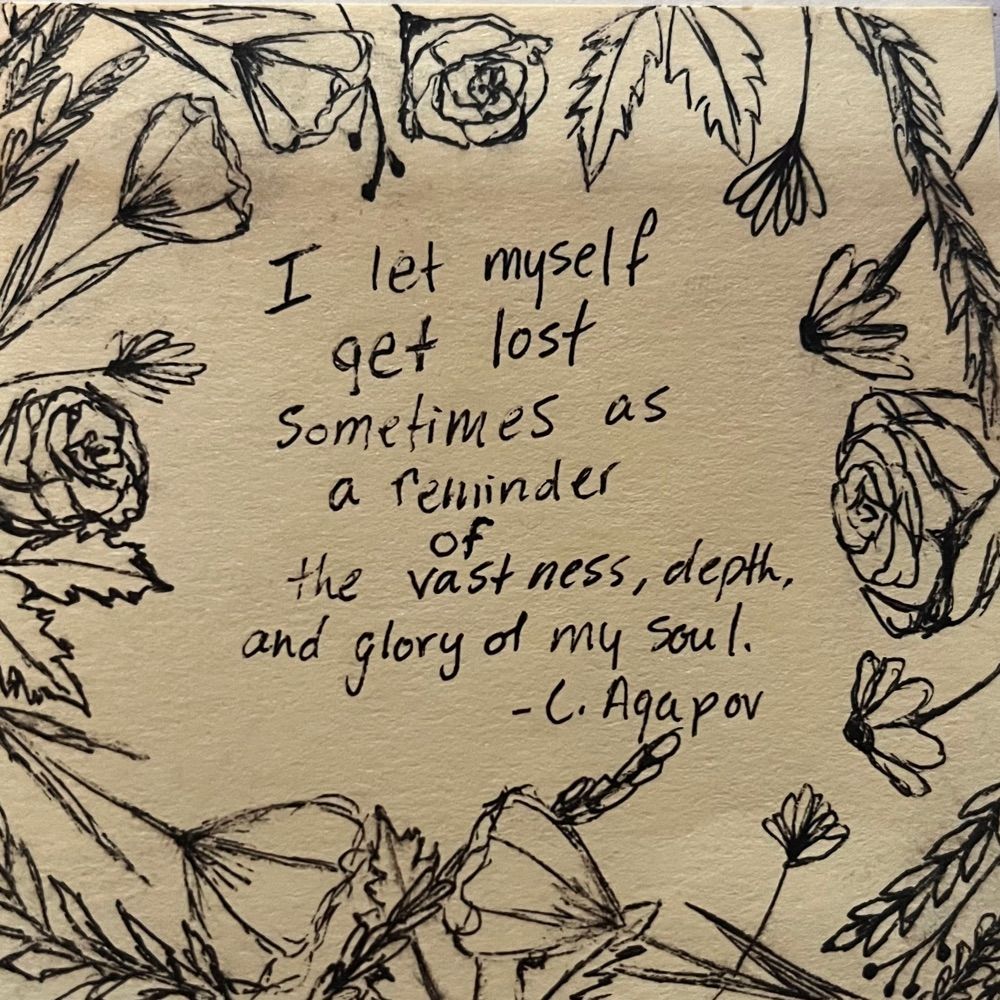 I let myself
get lost
sometimes as
a reminder
of
the vastness, depth,
and glory of my soul.
-C. Agapov